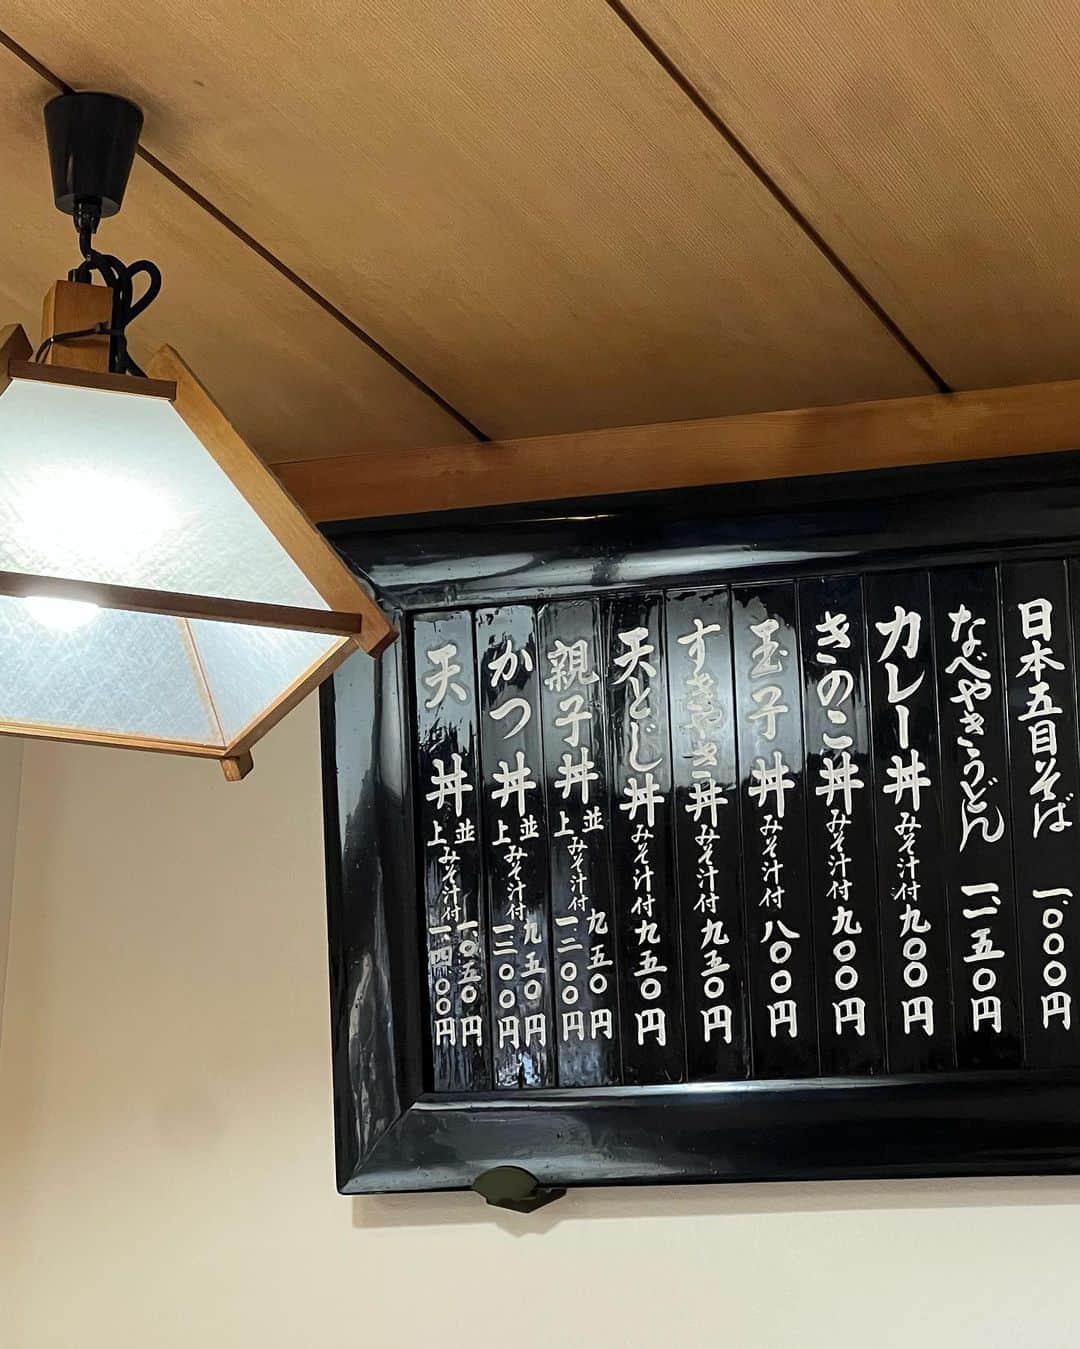 日本五目そば 一、〇〇〇円
なべやきうどん 一、一五〇円
カレー丼 みそ汁付 九〇〇円
きのこ丼 みそ汁付 九〇〇円
玉子丼 みそ汁付 八〇〇円
すきやき丼 みそ汁付 九五〇円
天とじ丼 みそ汁付 九五〇円
親子丼 並 上 みそ汁付 九五〇円 一、二〇〇円
かつ丼 並 上 みそ汁付 九五〇円 一、三〇〇円
天丼 並 上 みそ汁付 一、〇五〇円 一、四〇〇円